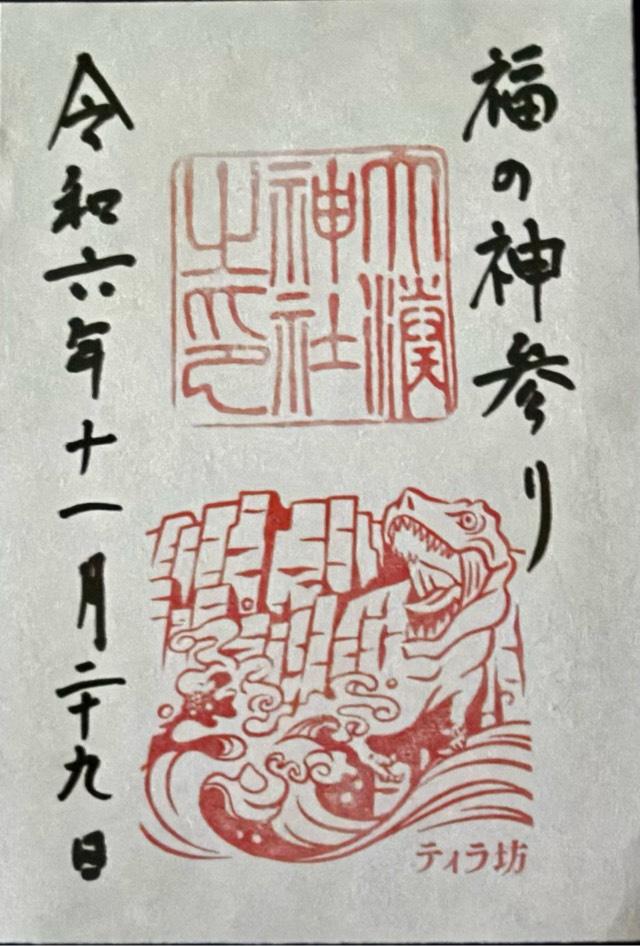 福の神参り
大湊
神社
之印
ティラ坊
令和六年十一月二十九日